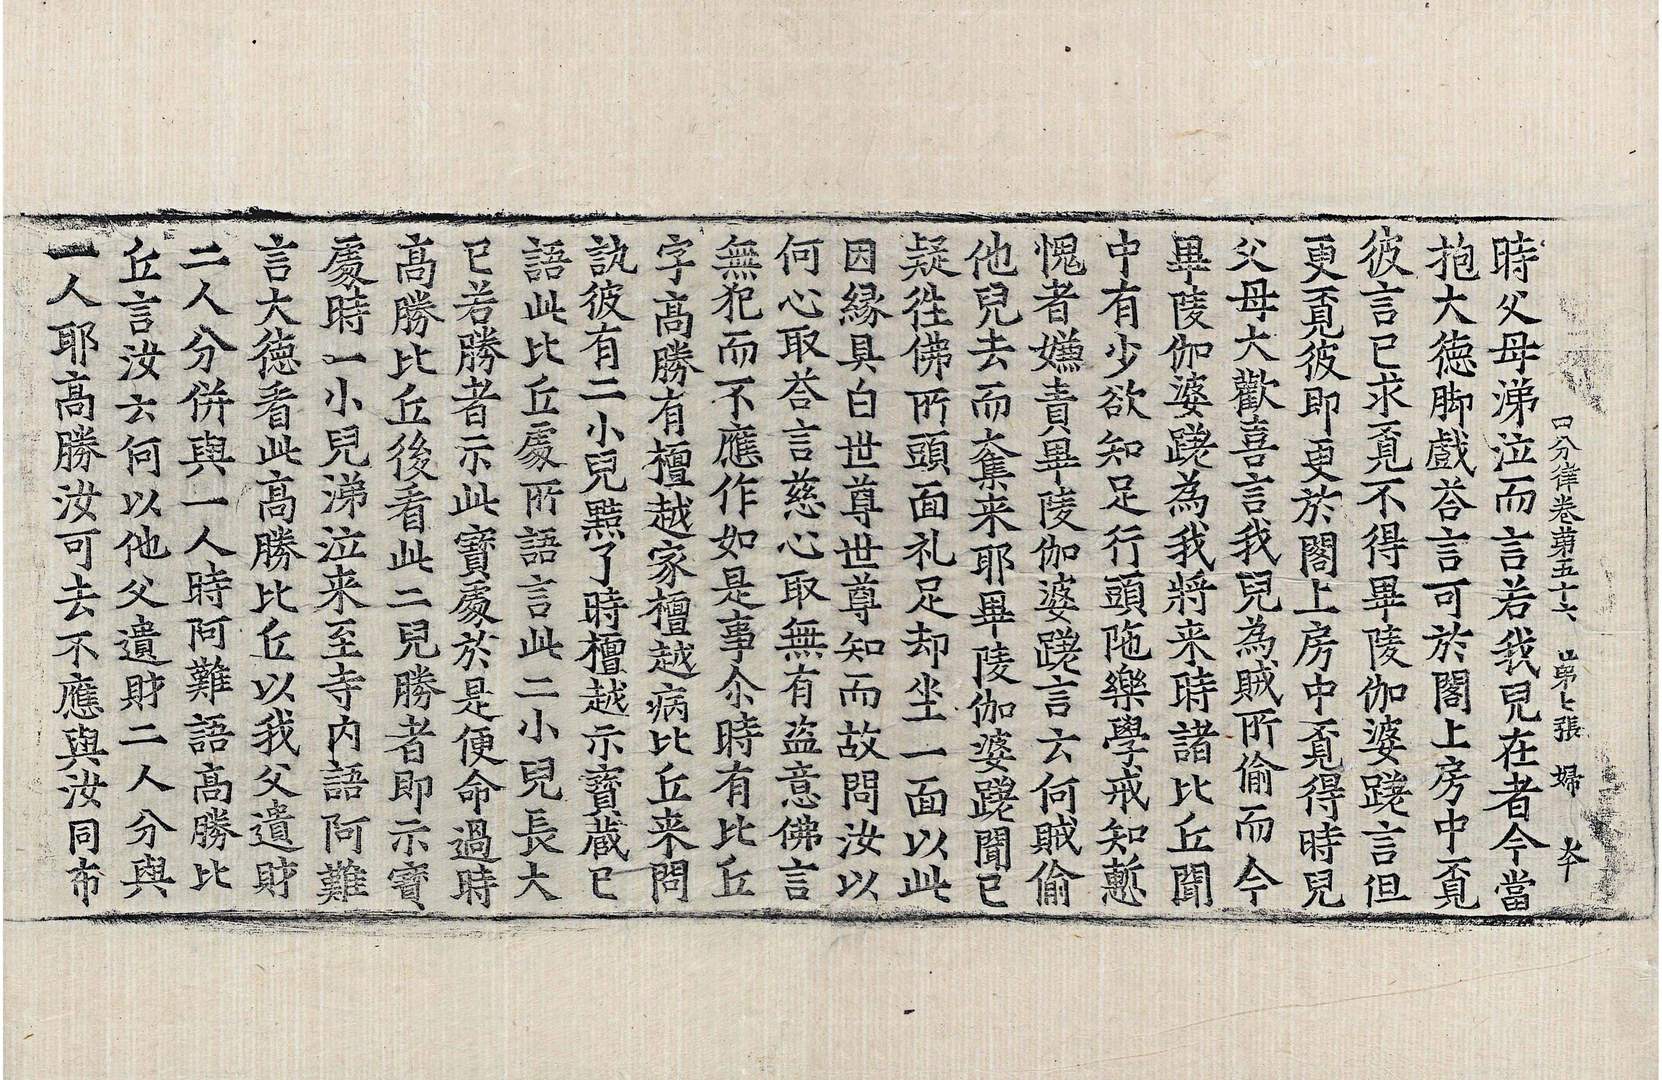 四分律卷第五十六 第七張 婦
時父母涕泣而言若我兒在者今當
抱大德脚戲荅言可於閣上房中覓
彼言已求覓不得畢陵伽婆蹉言但
更覓彼即更於閣上房中覓得時兒
父母大歡喜言我兒為賊所偷而今
畢陵伽婆蹉為我將来時諸比丘聞
中有少欲知足行頭陁樂學戒知慙
愧者嫌責畢陵伽婆蹉言云何賊偷
他兒去而奪来耶畢陵伽婆蹉聞已
疑徃佛所頭面礼足却坐一面以此
因縁具白世尊世尊知而故問汝以
何心取荅言慈心取無有盜意佛言
無犯而不應作如是事尒時有比丘
字髙勝有檀越家檀越病比丘来問
訊彼有二小兒黠了時檀越示寶藏已
語此比丘處所語言此二小兒長大
已若勝者示此寶處於是便命過時
髙勝比丘後看此二兒勝者即示寶
處時一小兒涕泣来至寺内語阿難
言大德看此髙勝比丘以我父遺財
二人分併與一人時阿難語髙勝比
丘言汝云何以他父遺財二人分與
一人耶髙勝汝可去不應與汝同布